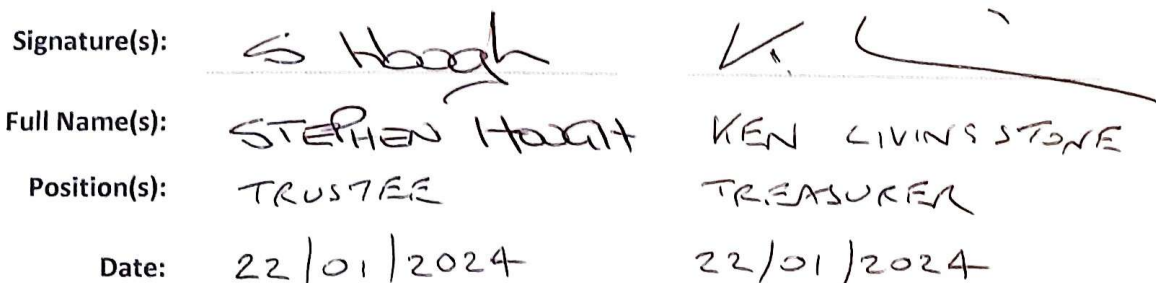 Signature(s): S Hough K. L
Full Name(s): STEPHEN HOUGH KEN LIVINGSTONE
Position(s): TRUSTEE TREASURER
Date: 22/01/2024 22/01/2024